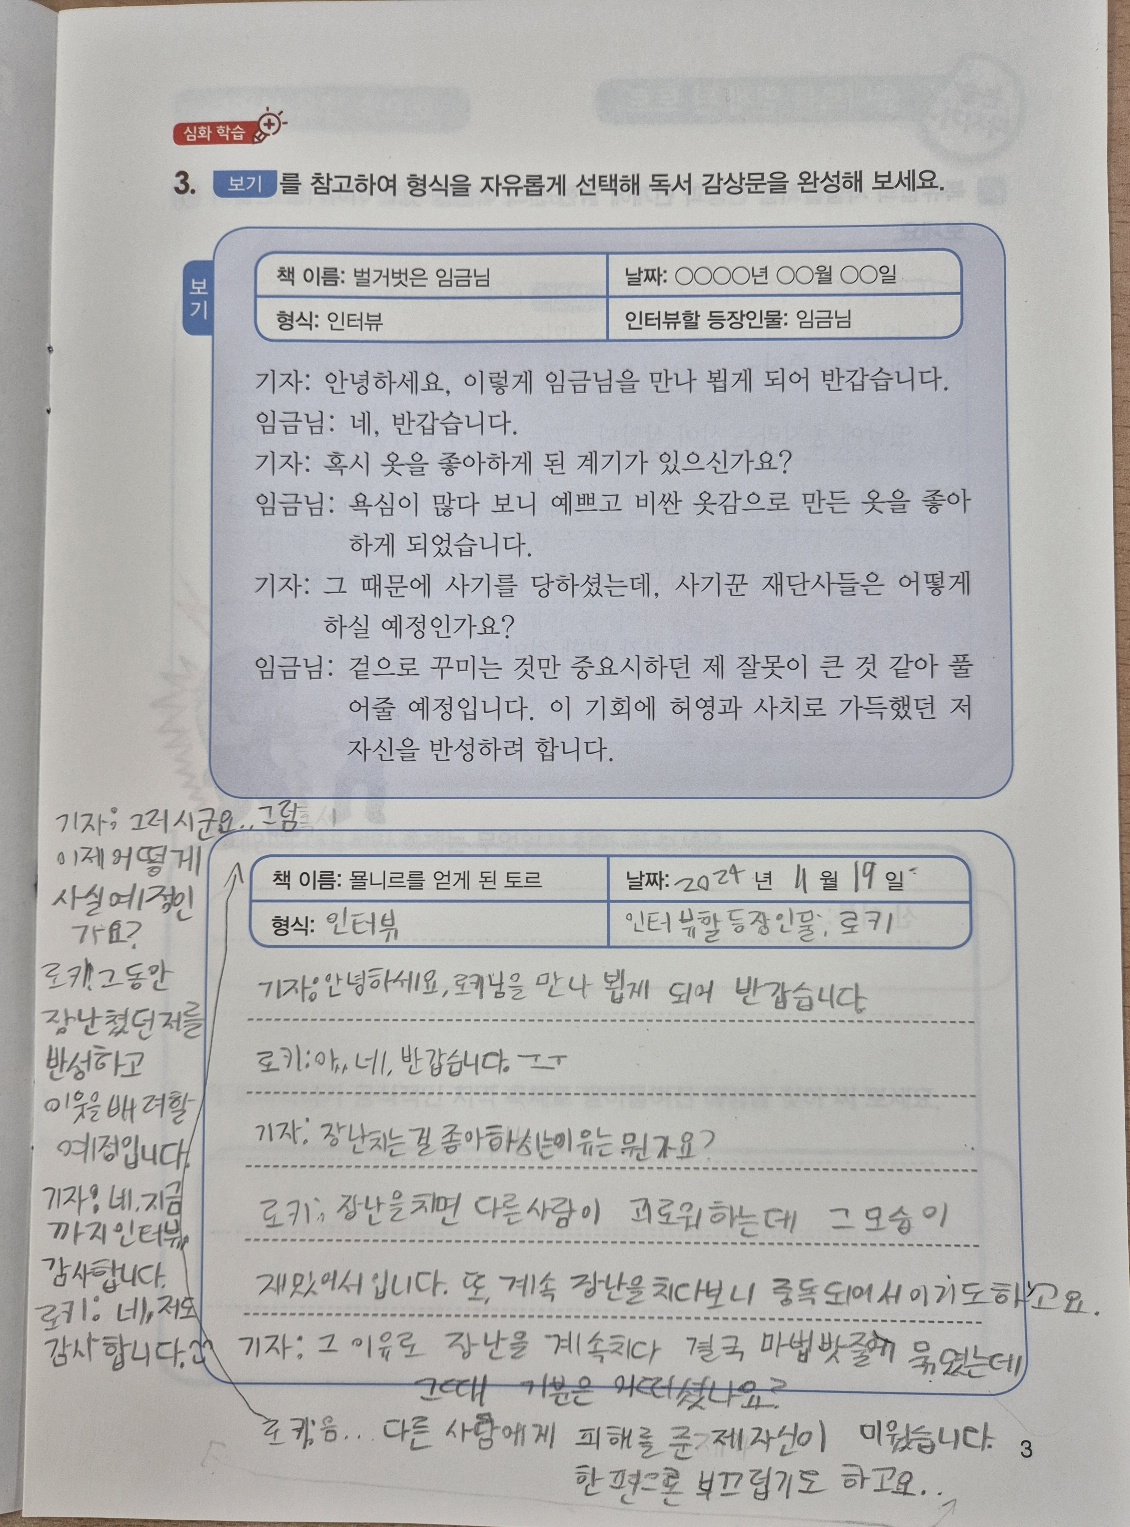 심화 학습
3. 보기 를 참고하여 형식을 자유롭게 선택해 독서 감상문을 완성해 보세요.
보기
책 이름: 벌거벗은 임금님
날짜: ○○○○년 ○○월 ○○일
형식: 인터뷰
인터뷰할 등장인물: 임금님
기자: 안녕하세요, 이렇게 임금님을 만나 뵙게 되어 반갑습니다.
임금님: 네, 반갑습니다.
기자: 혹시 옷을 좋아하게 된 계기가 있으신가요?
임금님: 욕심이 많다 보니 예쁘고 비싼 옷감으로 만든 옷을 좋아
하게 되었습니다.
기자: 그 때문에 사기를 당하셨는데, 사기꾼 재단사들은 어떻게
하실 예정인가요?
임금님: 겉으로 꾸미는 것만 중요시하던 제 잘못이 큰 것 같아 풀
어줄 예정입니다. 이 기회에 허영과 사치로 가득했던 저
자신을 반성하려 합니다.
책 이름: 묠니르를 얻게 된 토르
날짜: 2024 년 11 월 19 일
형식: 인터뷰
인터뷰할 등장인물: 로키
기자: 안녕하세요, 로키님을 만나 뵙게 되어 반갑습니다
로키: 아,, 네, 반갑습니다. ㅜㅜ
기자: 장난치는걸 좋아하시는이유는 뭔가요?
로키: 장난을치면 다른사람이 괴로워하는데 그 모습이
재밌어서입니다. 또, 계속 장난을치다보니 중독되어서이기도하고요.
기자: 그 이유로 장난을 계속치다 결국 마법밧줄에 묶였는데
그때 기분은 어떠셨나요?
로키: 음... 다른 사람에게 피해를 준 제자신이 미웠습니다.
한편으론 부끄럽기도 하고요..
기자: 그러시군요.. 그럼
이제어떻게
사실예정인
가요?
로키: 그동안
장난쳤던저를
반성하고
이웃을배려할
예정입니다.
기자: 네, 지금
까지인터뷰
감사합니다.
로키: 네, 저도
감사합니다.
3